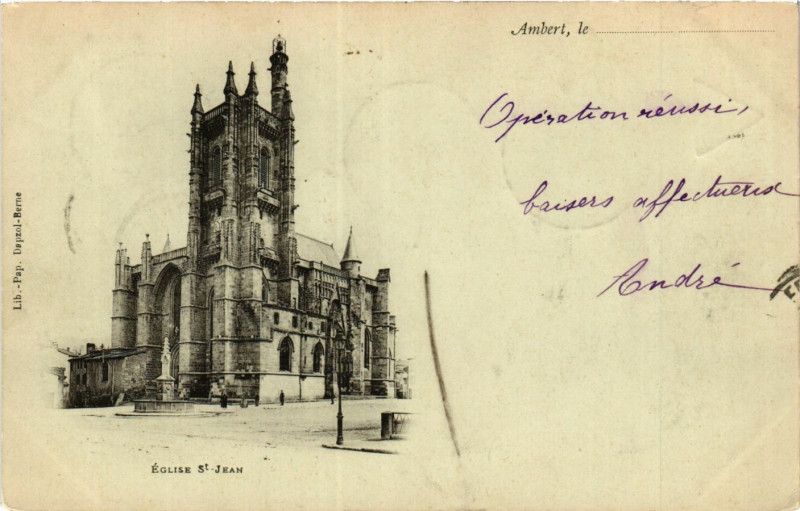 Ambert, le
Opération réussi,
baisers affectueux
André
Lib.-Pap. Dapzol-Berne
ÉGLISE St-JEAN